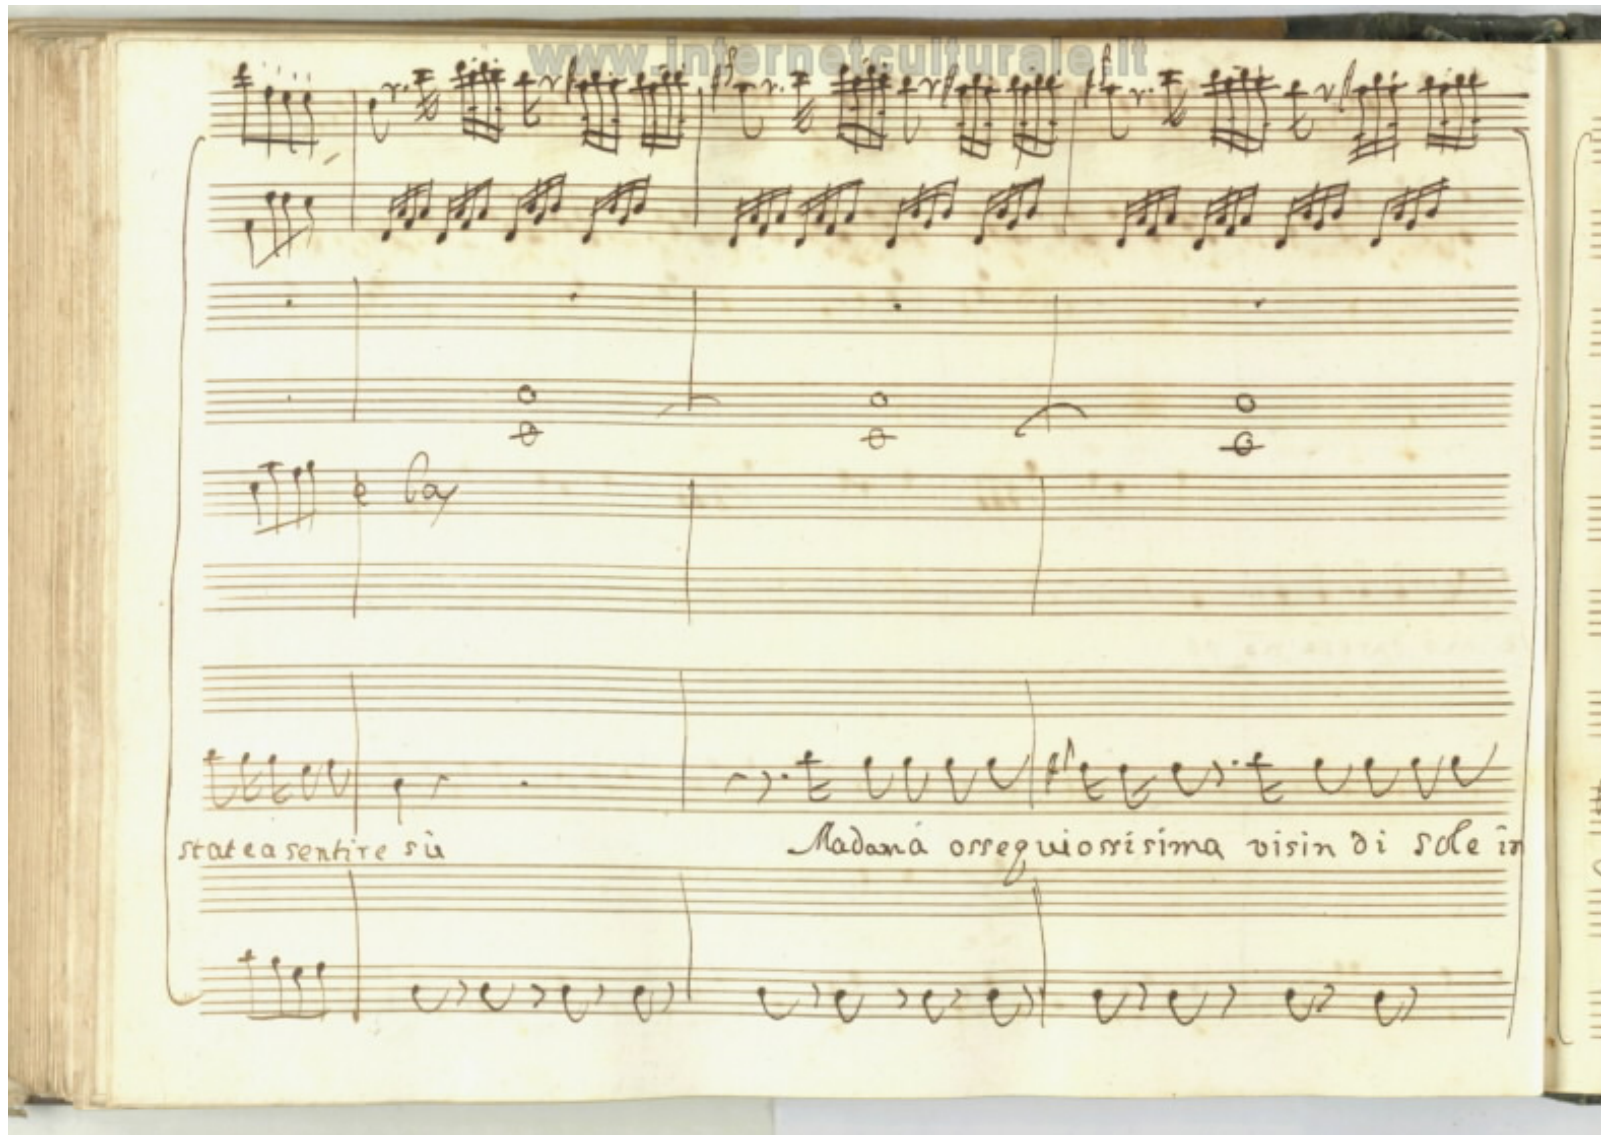 www.internetculturale.it
state a sentire sù
Madama ossequiosissima visin di sole in